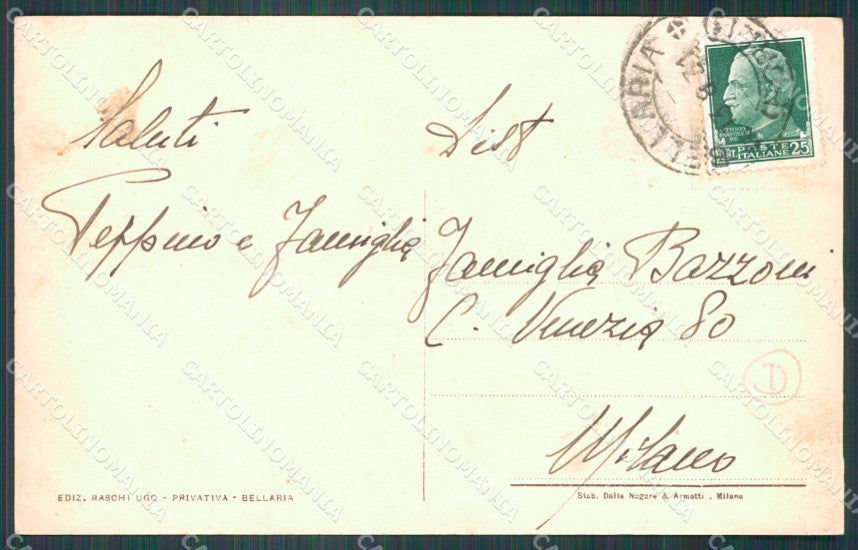 Saluti
Peppino e Famiglia
Dist
Famiglia Bazzoni
C. Venezia 80
Milano
D
BELLARIA
POSTE
ITALIANE
25
EDIZ. RASCHI UGO - PRIVATIVA - BELLARIA
Stab. Dalle Nogare & Armetti . Milano
CARTOLINOMANIA